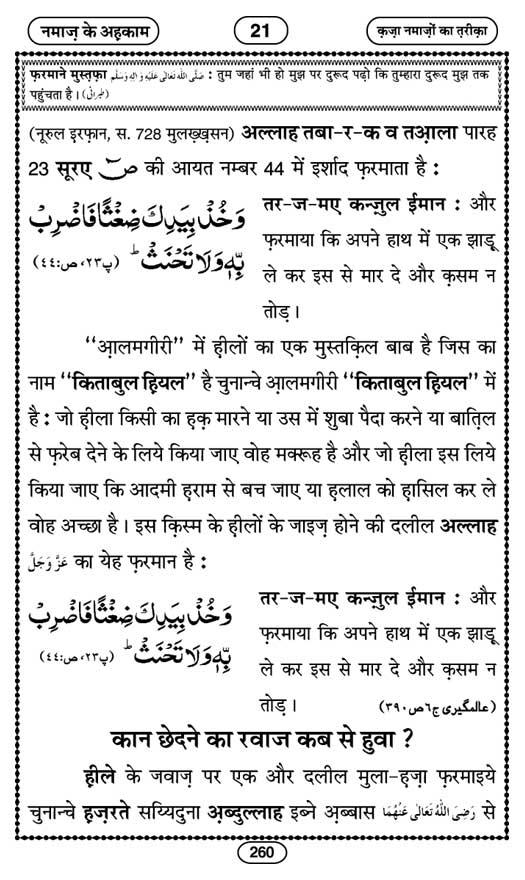 नमाज़ के अह़काम
21
क़ज़ा नमाज़ों का त़रीक़ा
फ़रमाने मुस्त़फ़ा صَلَّى اللّٰهُ تَعَالٰى عَلَيْهِ وَاٰلِهٖ وَسَلَّم : तुम जहां भी हो मुझ पर दुरूद पढ़ो कि तुम्हारा दुरूद मुझ तक
पहुंचता है । (طبرانی)
(नूरुल इरफ़ान, स. 728 मुलख़्ख़सन) अल्लाह तबा-र-क व तआ़ला पारह
23 सूरए صٓ की आयत नम्बर 44 में इर्शाद फ़रमाता है :
وَخُذْ بِيَدِكَ ضِغْثًا فَاضْرِبْ
بِّهٖ وَلَا تَحْنَثْ ؕ (پ۲۳، صٓ:٤٤)
तर-ज-मए कन्ज़ुल ईमान : और
फ़रमाया कि अपने हाथ में एक झाड़ू
ले कर इस से मार दे और क़सम न
तोड़ ।
‘‘आ़लमगीरी’’ में ह़ीलों का एक मुस्तक़िल बाब है जिस का
नाम ‘‘किताबुल ह़ियल’’ है चुनान्चे आ़लमगीरी ‘‘किताबुल ह़ियल’’ में
है : जो ह़ीला किसी का ह़क़ मारने या उस में शुबा पैदा करने या बात़िल
से फ़रेब देने के लिये किया जाए वोह मक्रूह है और जो ह़ीला इस लिये
किया जाए कि आदमी ह़राम से बच जाए या ह़लाल को ह़ासिल कर ले
वोह अच्छा है । इस क़िस्म के ह़ीलों के जाइज़ होने की दलील अल्लाह
عَزَّ وَجَلَّ का येह फ़रमान है :
وَخُذْ بِيَدِكَ ضِغْثًا فَاضْرِبْ
بِّهٖ وَلَا تَحْنَثْ ؕ (پ۲۳، صٓ:٤٤)
तर-ज-मए कन्ज़ुल ईमान : और
फ़रमाया कि अपने हाथ में एक झाड़ू
ले कर इस से मार दे और क़सम न
तोड़ । (عالمگیری ج٦ ص ۳۹۰)
कान छेदने का रवाज कब से हुवा ?
ह़ीले के जवाज़ पर एक और दलील मुला-ह़ज़ा फ़रमाइये
चुनान्चे ह़ज़रते सय्यिदुना अ़ब्दुल्लाह इब्ने अ़ब्बास رَضِيَ اللّٰهُ تَعَالٰى عَنْهُمَا से
260